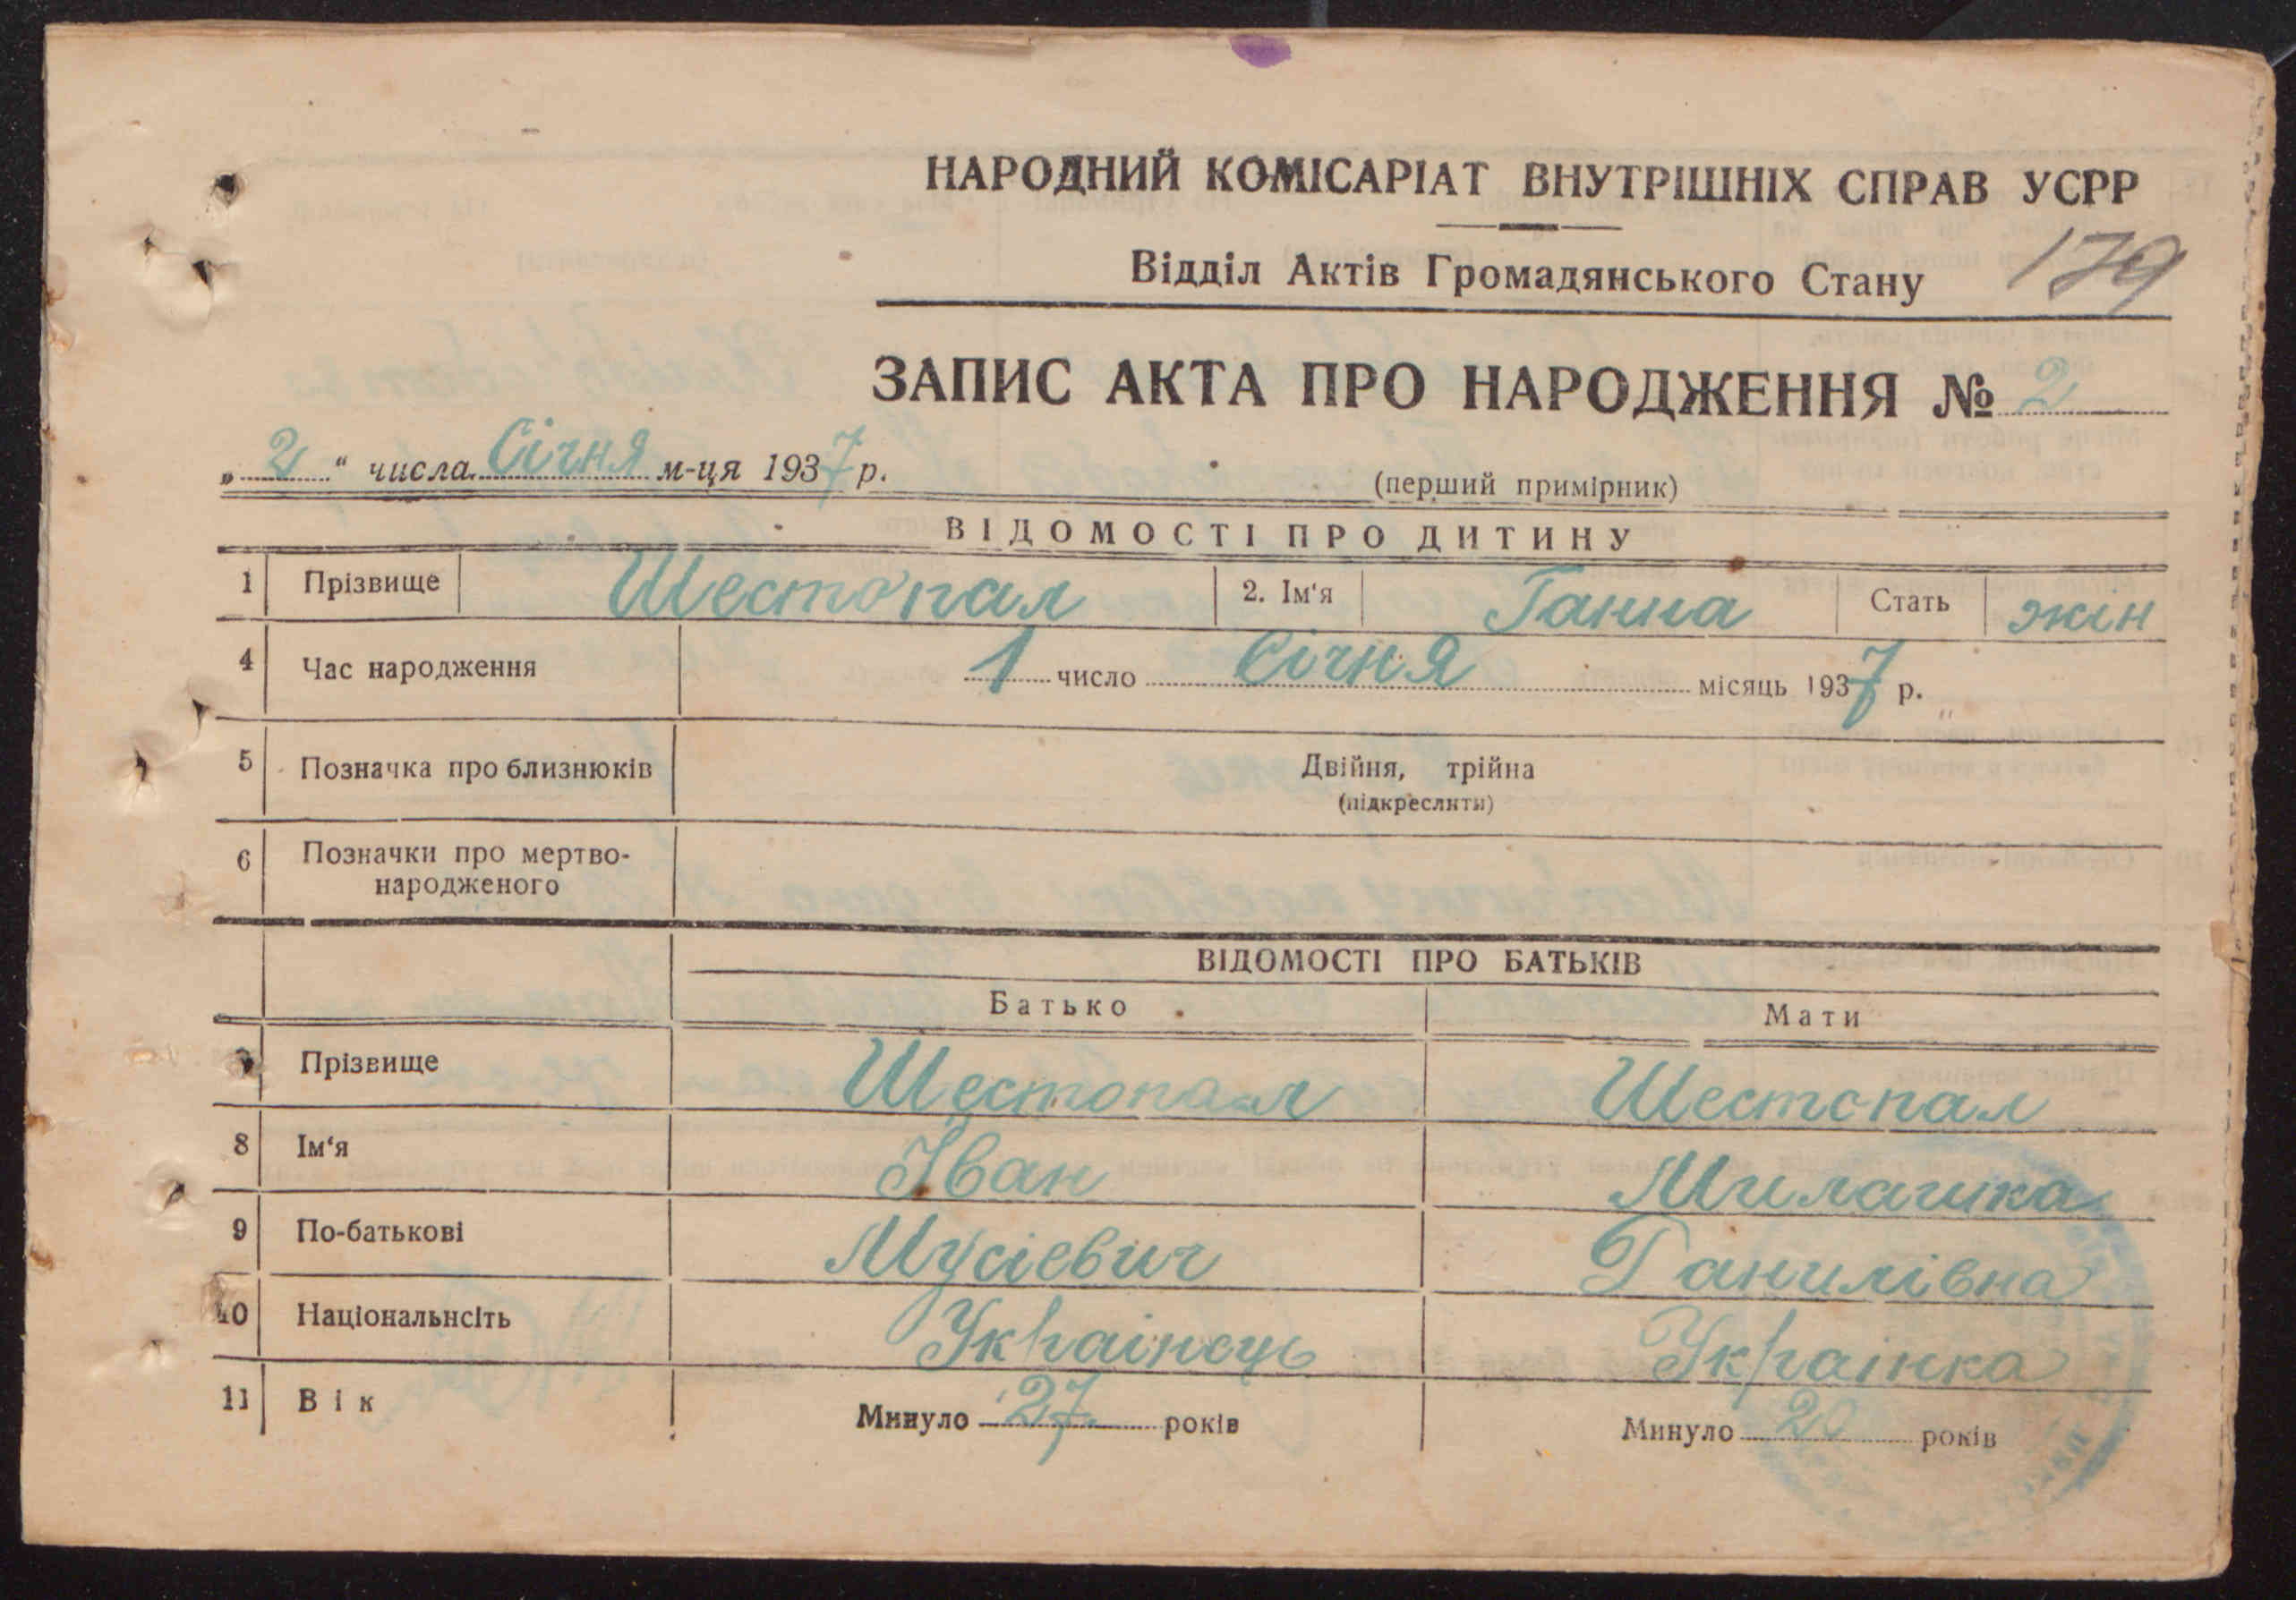 НАРОДНИЙ КОМІСАРІАТ ВНУТРІШНІХ СПРАВ УСРР
Відділ Актів Громадянського Стану 179
ЗАПИС АКТА ПРО НАРОДЖЕННЯ № 2
„2“ числа Січня м-ця 1937 р.
(перший примірник)
ВІДОМОСТІ ПРО ДИТИНУ
1 Прізвище Шестопал 2. Ім‘я Ганна Стать жін
4 Час народження 1 число Січня місяць 1937 р.
5 Позначка про близнюків Двійня, трійна
(підкреслити)
6 Позначки про мертво-
народженого
ВІДОМОСТІ ПРО БАТЬКІВ
Батько Мати
Прізвище Шестопал Шестопал
8 Ім‘я Іван Милашка
9 По-батькові Мусієвич Данилівна
10 Національнсіть Українець Українка
11 Вік Минуло 27 років Минуло 20 років